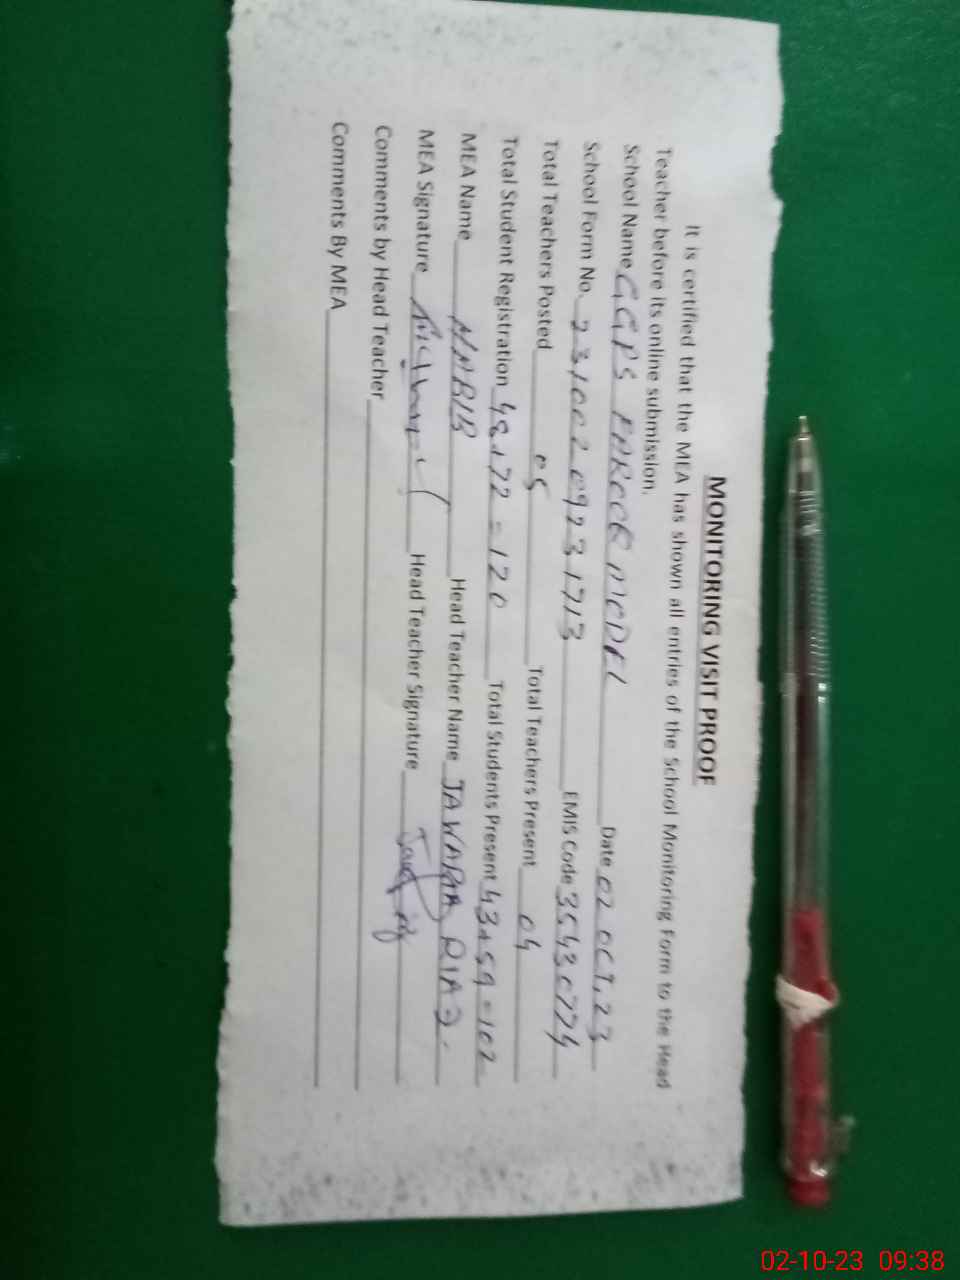 MONITORING VISIT PROOF
It is certified that the MEA has shown all entries of the School Monitoring Form to the Head
Teacher before its online submission.
School Name GGPS FAROOR MODEL Date 02 OCT, 23
School Form No. 2310020923 1713 EMIS Code 35430774
Total Teachers Posted 05 Total Teachers Present 04
Total Student Registration 48+72 = 120 Total Students Present 43+59=102
MEA Name Head Teacher Name JAWARIA RIAZ.
MEA Signature Head Teacher Signature
Comments by Head Teacher
Comments By MEA
02-10-23 09:38